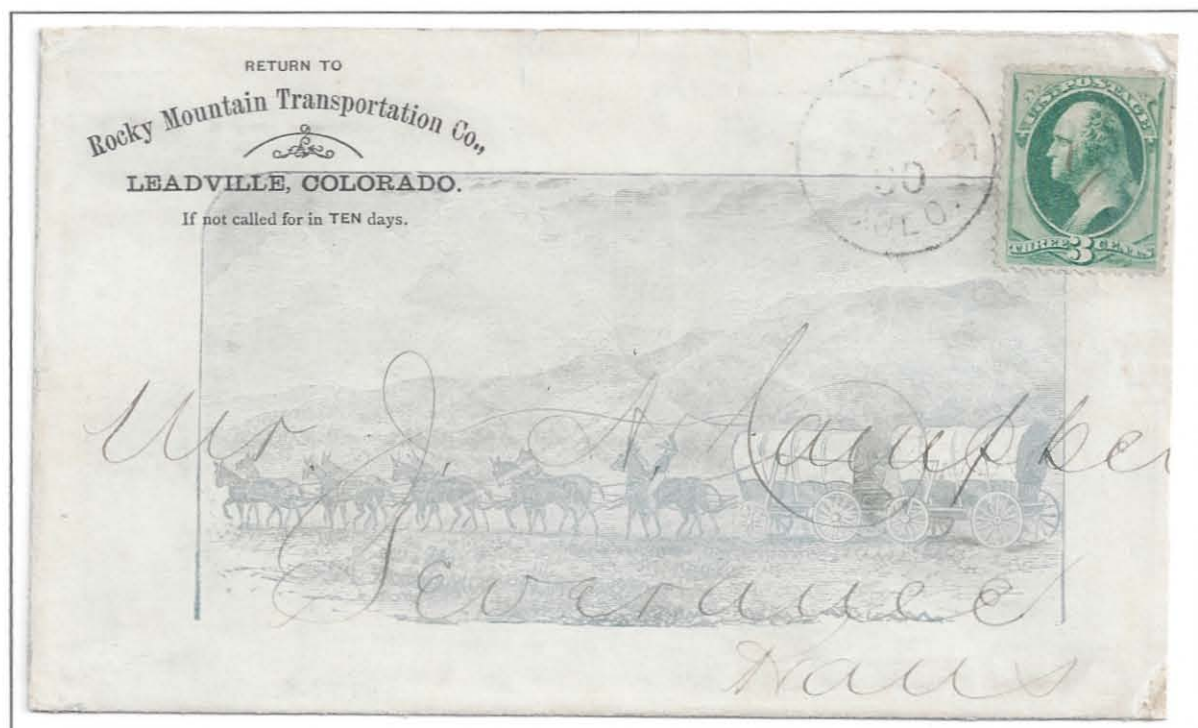 RETURN TO
Rocky Mountain Transportation Co.,
LEADVILLE, COLORADO.
If not called for in TEN days.
30
COLO.
U.S. POSTAGE
THREE 3 CENTS
Mr J. A.
Severance
Kans